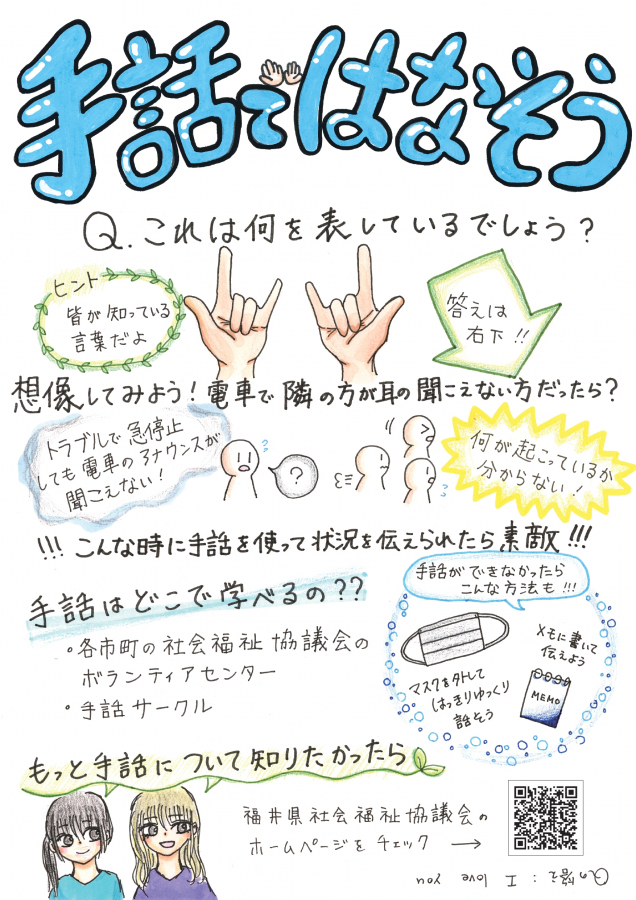 手話ではなそう
Q.これは何を表しているでしょう?
ヒント
皆が知っている
言葉だよ
答えは
右下!!
想像してみよう!電車で隣の方が耳の聞こえない方だったら?
トラブルで急停止
しても電車のアナウンスが
聞こえない!
?
何が起こっているか
分からない!
!!!こんな時に手話を使って状況を伝えられたら素敵!!!
手話はどこで学べるの??
・各市町の社会福祉協議会の
ボランティアセンター
・手話サークル
手話ができなかったら
こんな方法も!!!
マスクを外して
はっきりゆっくり
話そう
メモに書いて
伝えよう
MEMO
もっと手話について知りたかったら
福井県社会福祉協議会の
ホームページをチェック →
Qの答え:I love you